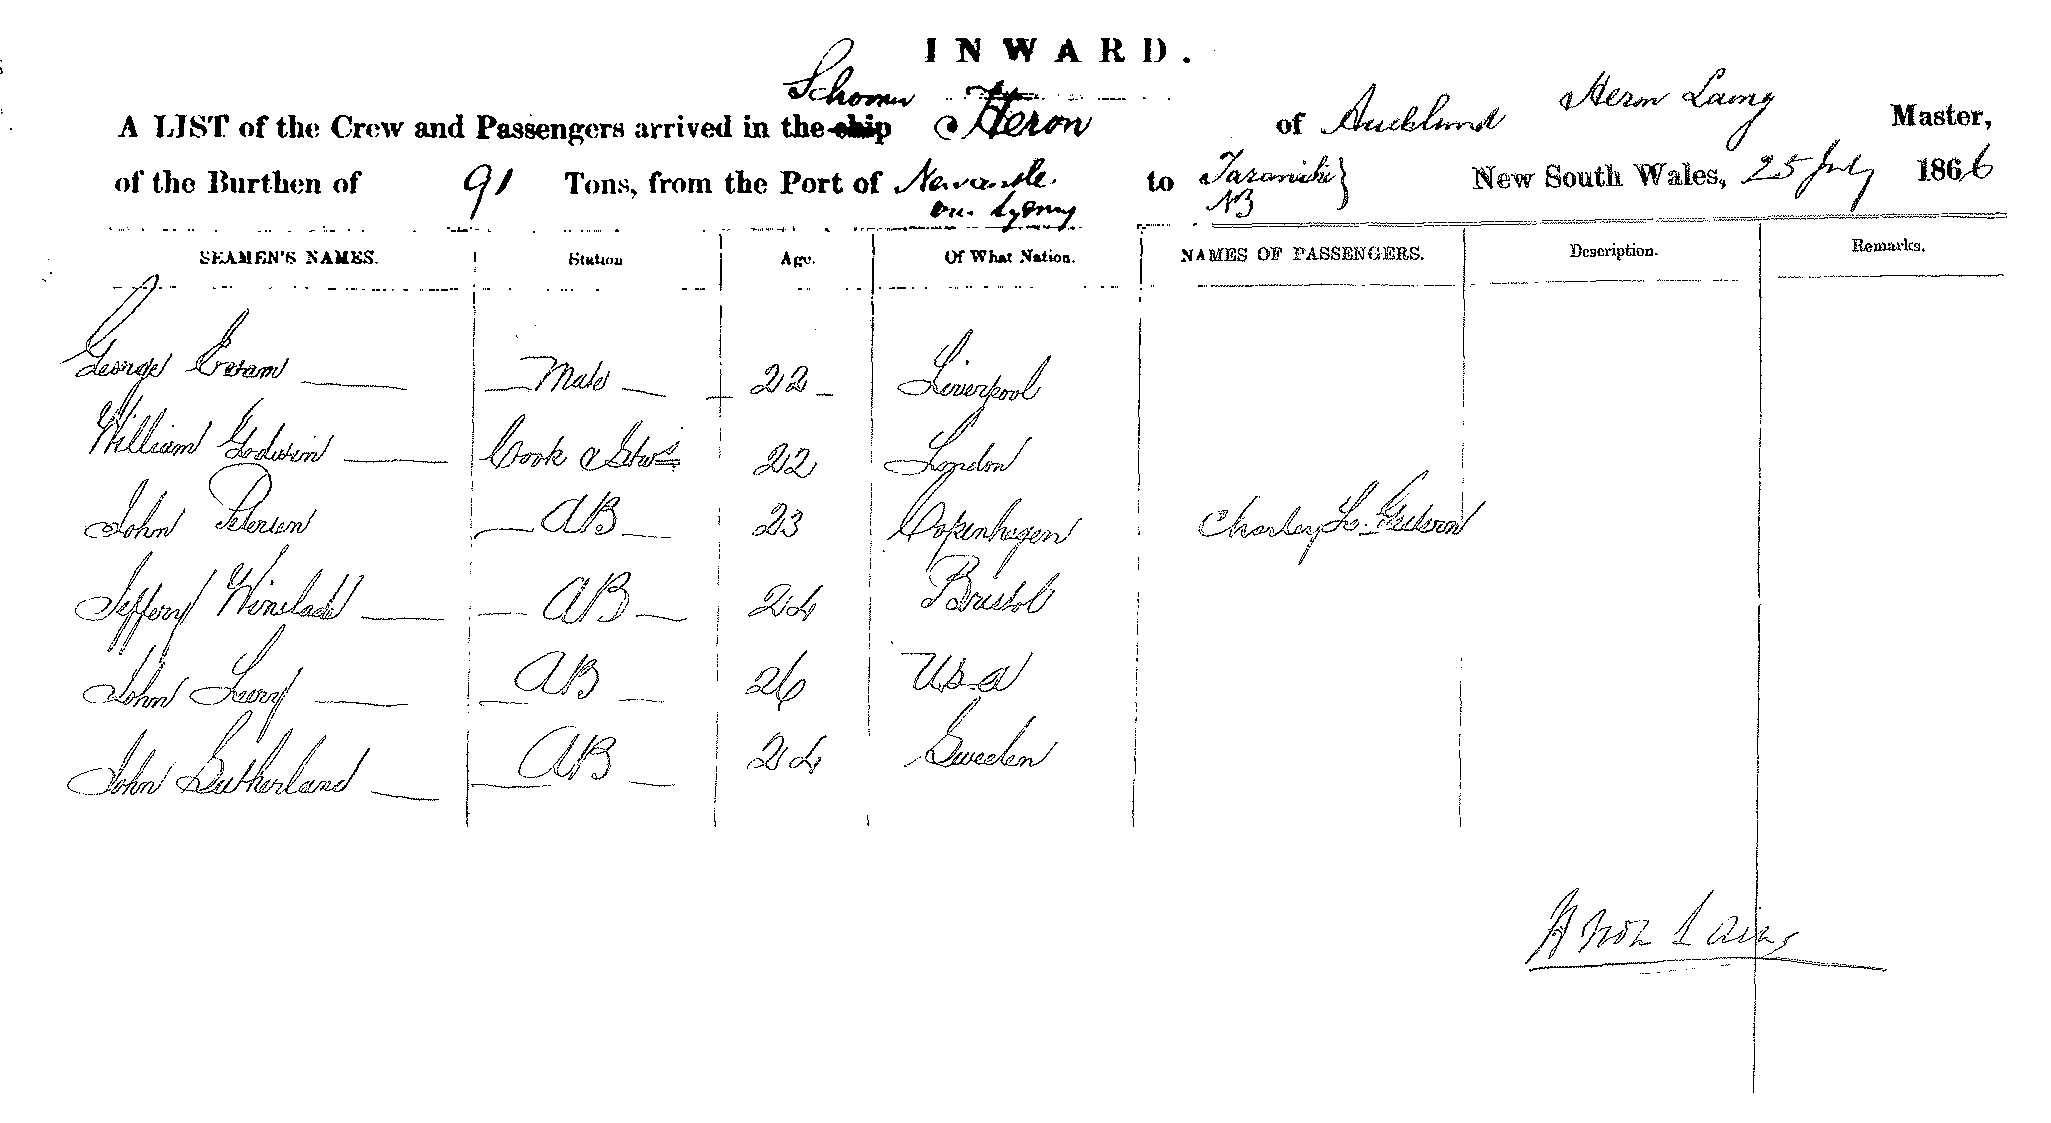 INWARD.
Schooner
A LIST of the Crew and Passengers arrived in the ship Heron of Auckland Laing Master,
of the Burthen of 91 Tons, from the Port of Newcastle to Taranaki} New South Wales, 25 July 1866
SEAMEN'S NAMES. Station Age. Of What Nation. NAMES OF PASSENGERS. Description. Remarks.
George Mate 22 Liverpool
William Godwin Cook & Stwd 22 London
John Petersen AB 23 Copenhagen Charley L.
Jeffery AB 24 Bristol
John AB 26 USA
John Sutherland AB 24 Sweden
Laing